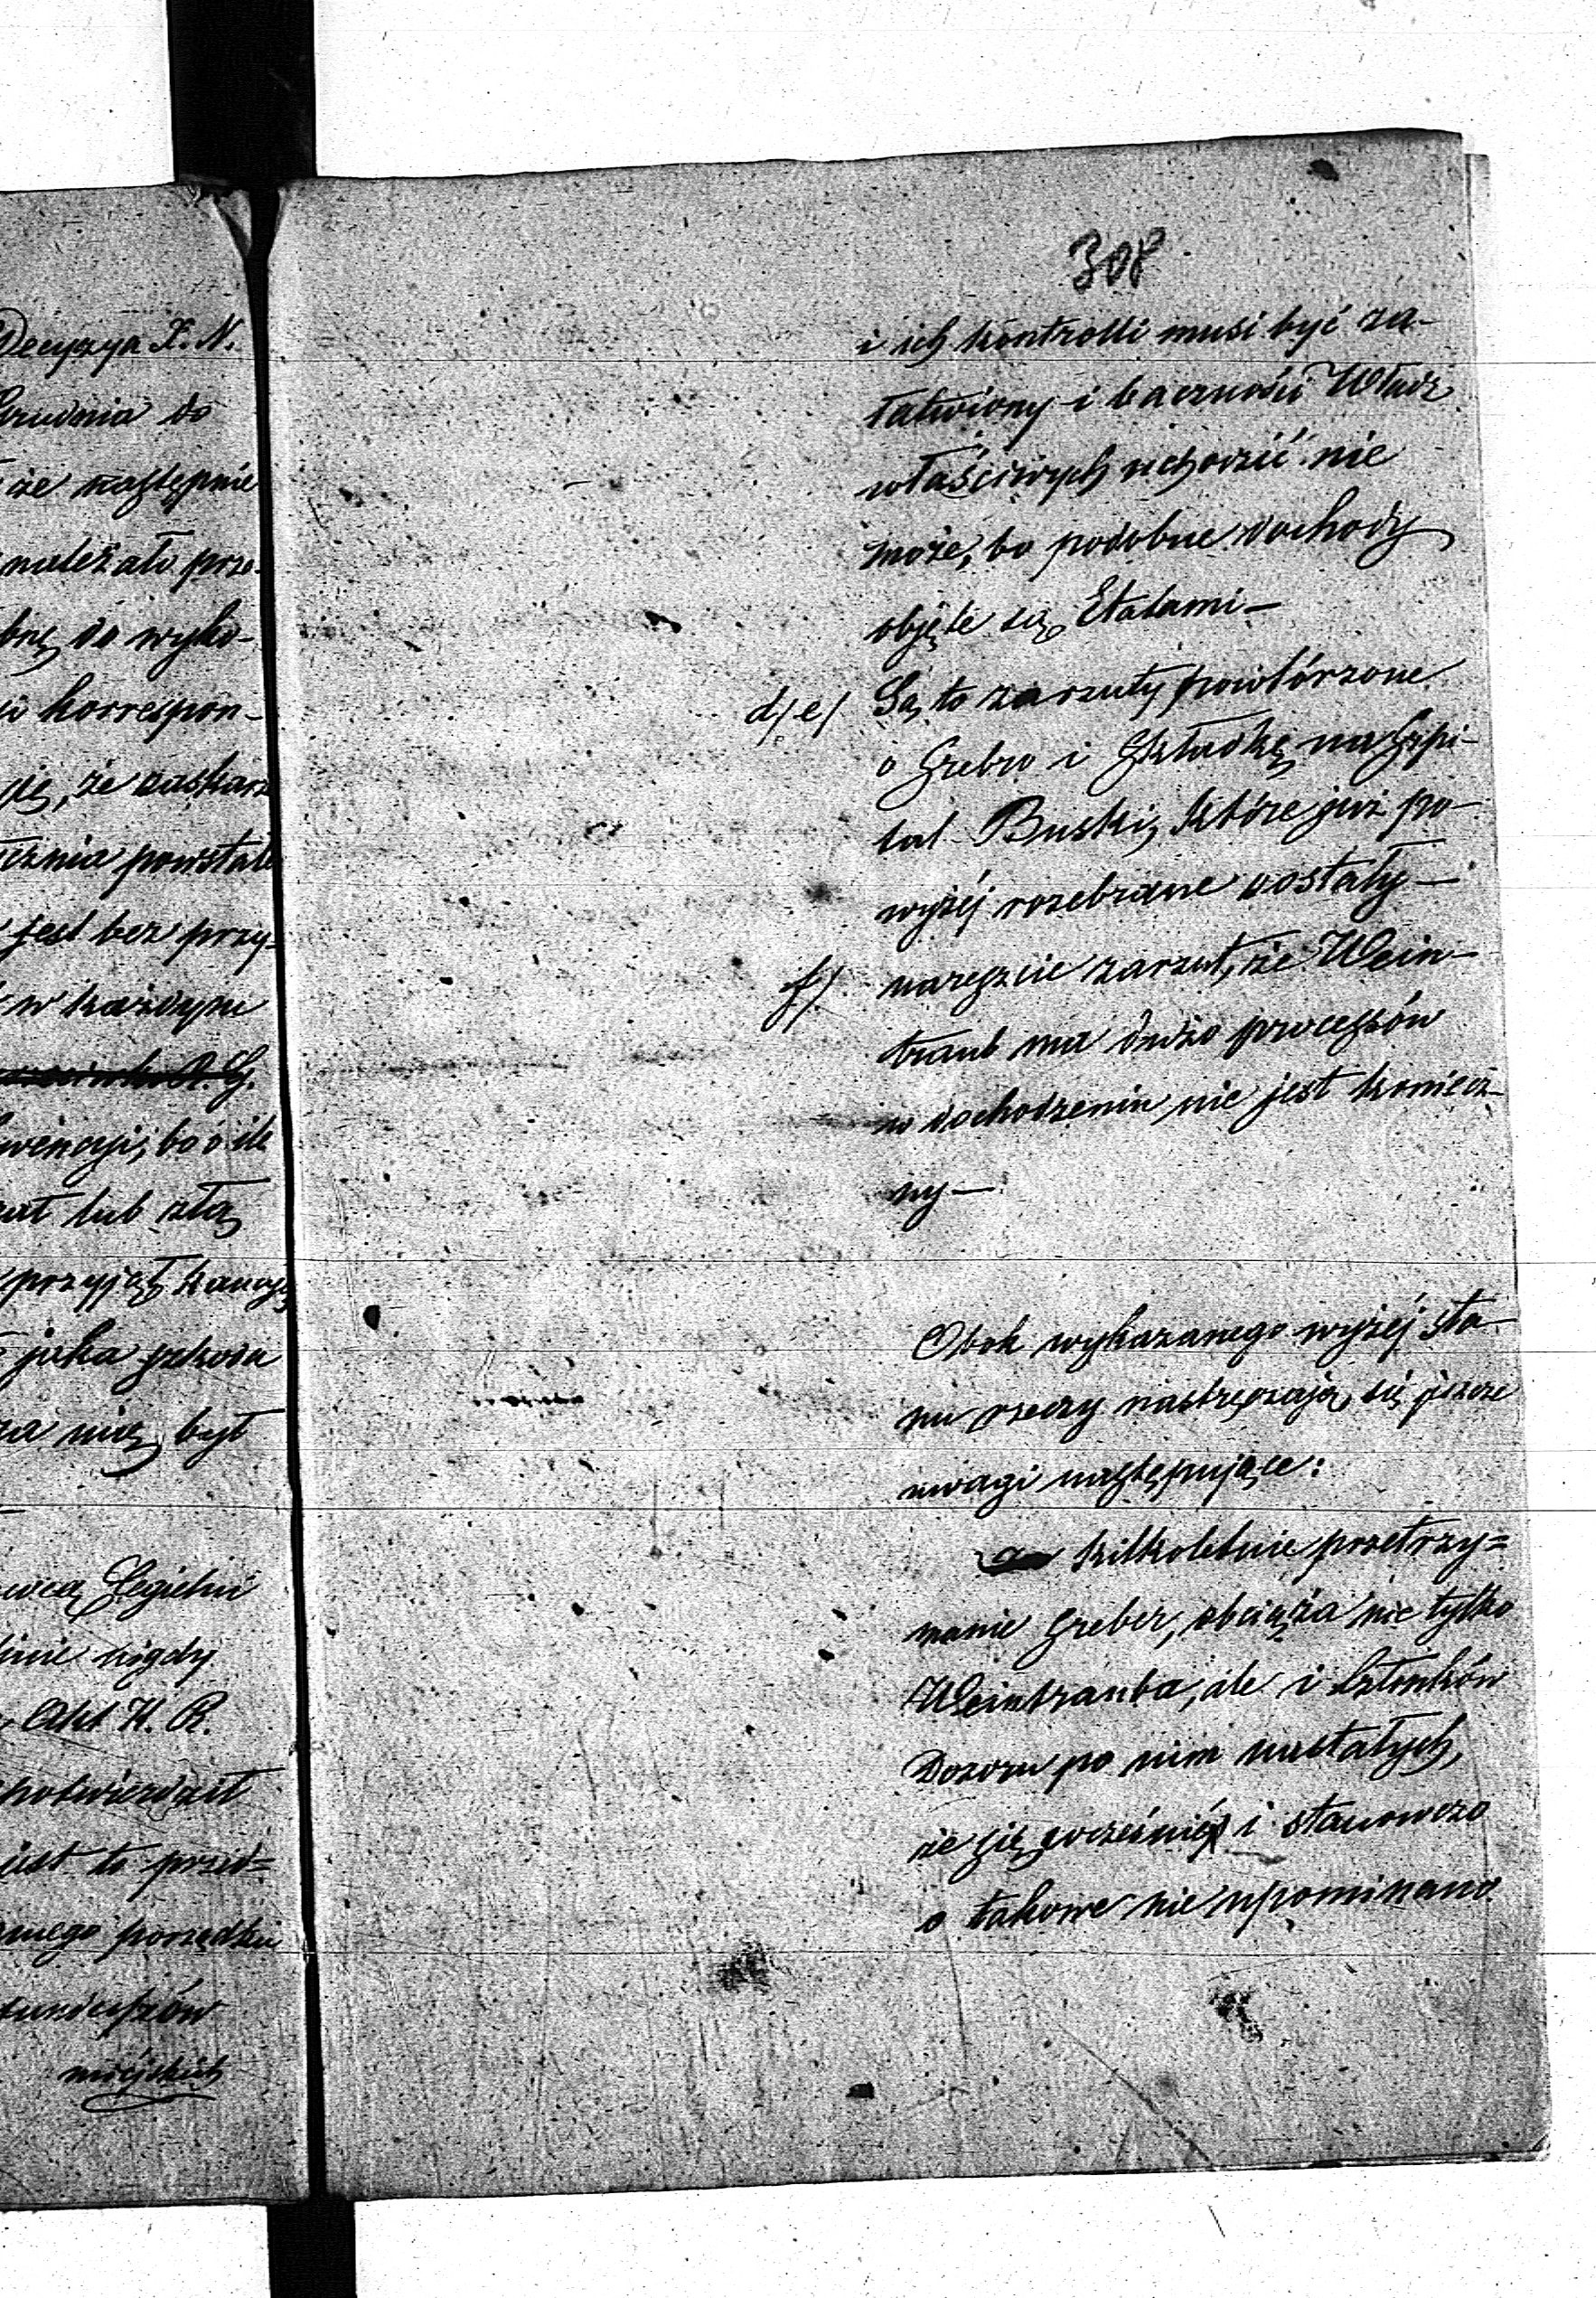 Decyzya K. N.
Grudnia do
że następnie
należało prze-
bnę do wyko-
korrespon-
ję, że zaskarż
powstałe
jest bez przy-
w każdym
wencji, bo o ile
lub złą
przyjął kaucyę
jaka szkoda
za nią był
wcą Cegielni
nigdy
Akt K. R.
potwierdził
jest to przed=
nego porządku
funduszów
miejskich
308
i ich kontrolli musi być za-
łatwiony i baczności Władz
właściwych uchodzić nie
może, bo podobne dochody
objęte są Etatami —
d/e/ Są to zarzuty powtórzone
o Srebro i Składkę na Szpi-
tal Buski, które już po-
wyżéj rozebrane zostały —
f/ nareszcie zarzut, że Wein-
traub ma dużo processów
w dochodzeniu nie jest koniecz-
ny —
Obok wykazanego wyżéj sta-
nu rzeczy nastręczają się jeszcze
uwagi następujące:
kilkoletnie przetrzy=
manie Sreber, obciąża nie tylko
Weintrauba, ale i Członków
Dozoru po nim nastałych,
że się wcześniéj i stanowczo
o takowe nie upominano